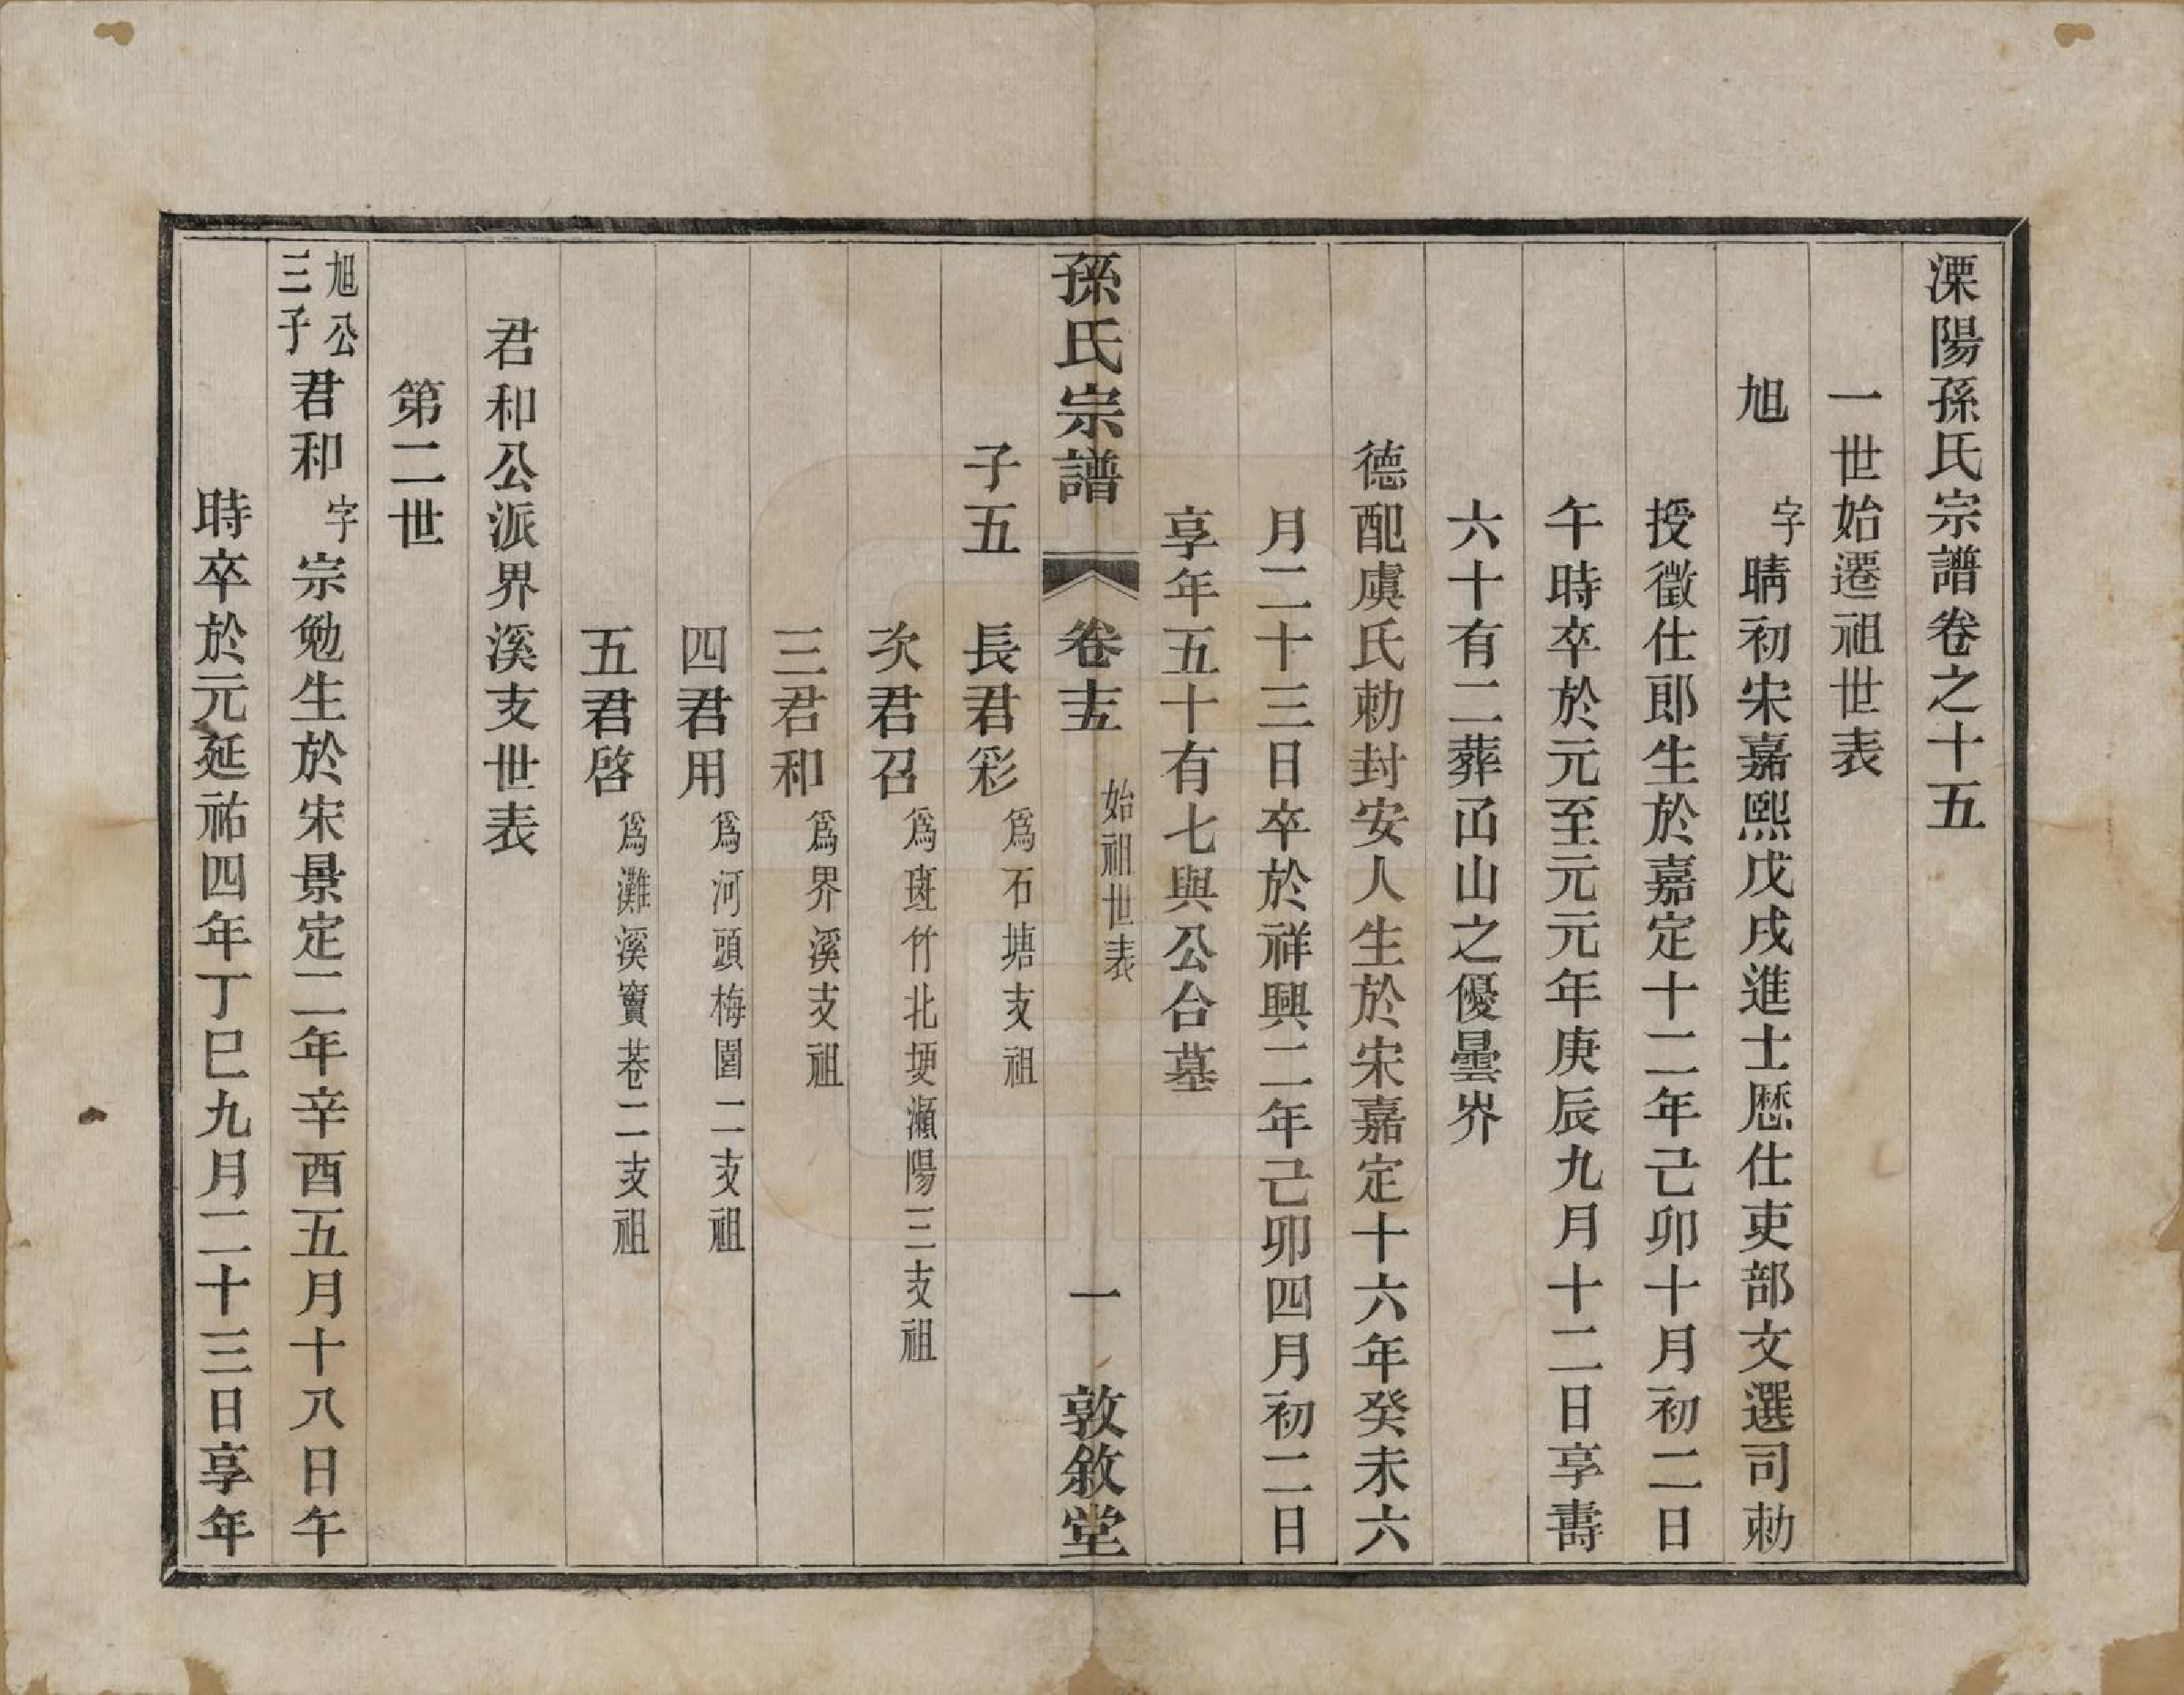 溧陽孫氏宗譜卷之十五
一世始遷祖世表
旭 字晴初宋嘉熙戊戌進士歷仕吏部文選司勅
授徵仕郎生於嘉定十二年己卯十月初二日
午時卒於元至元元年庚辰九月十二日享壽
六十有二葬凸山之優曇岕
德配虞氏勅封安人生於宋嘉定十六年癸未六
月二十三日卒於祥興二年己卯四月初二日
享年五十有七與公合墓
孫氏宗譜 卷十五 始祖世表 一 敦敘堂
子五 長君彩 爲石塘支祖
次君召 爲斑竹北埂瀨陽三支祖
三君和 爲界溪支祖
四君用 爲河頭梅園二支祖
五君啓 爲灘溪竇巷二支祖
君和公派界溪支世表
第二世
旭公三子 君和 字宗勉生於宋景定二年辛酉五月十八日午
時卒於元延祐四年丁巳九月二十三日享年